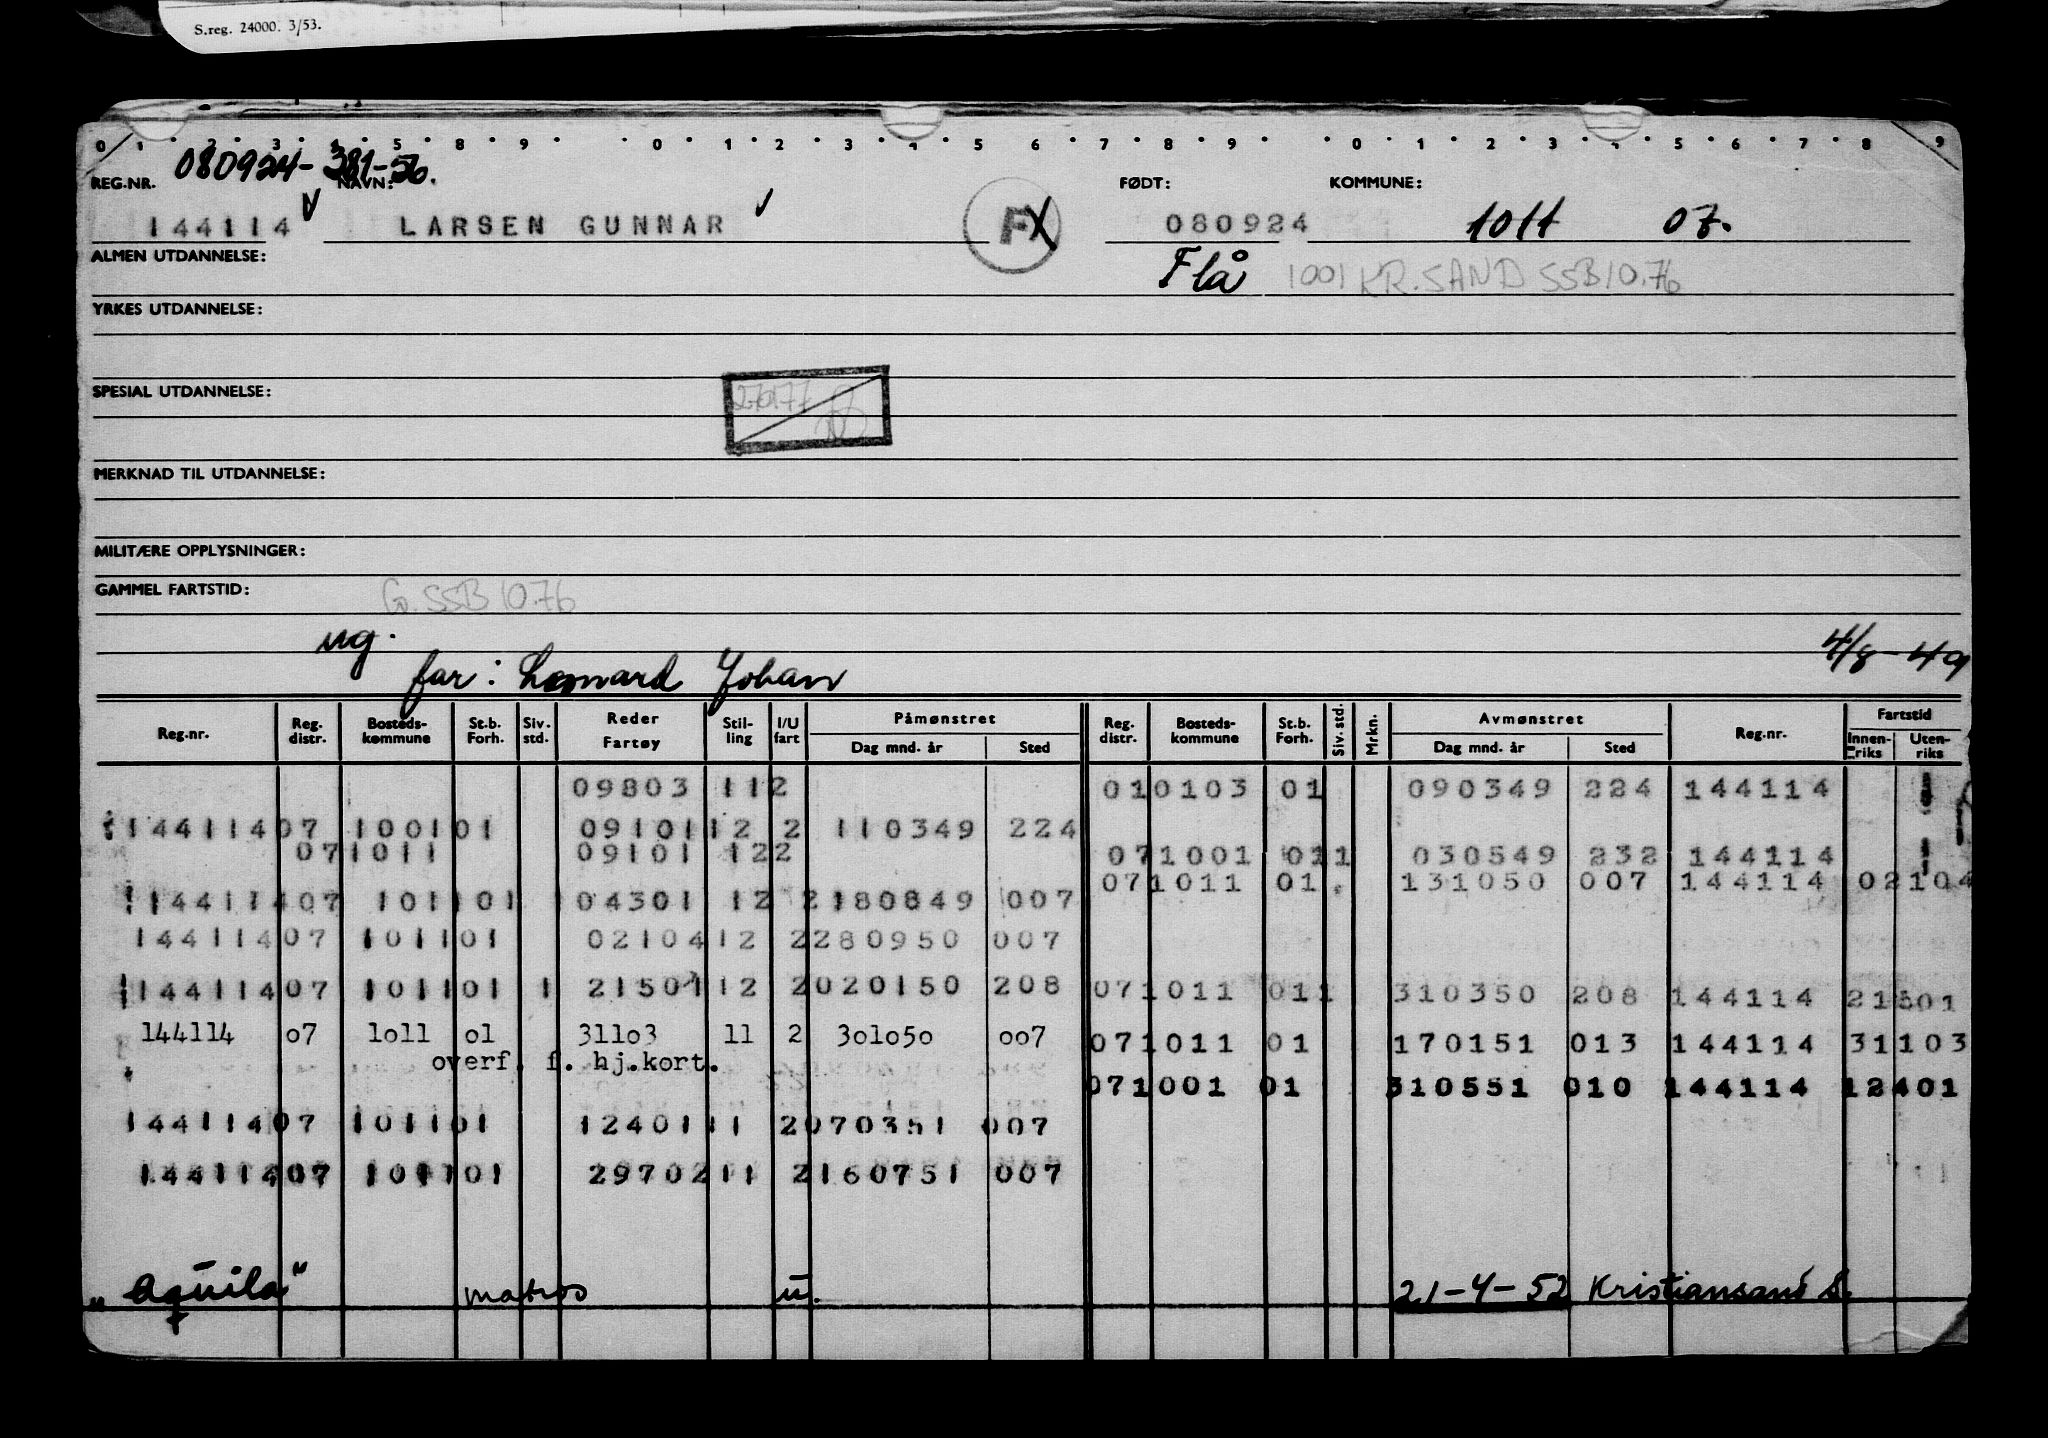 S.reg. 24000. 3/53.
0 1 2 3 5 8 9 0 1 2 3 4 5 6 7 8 9 0 1 2 3 4 5 6 7 8 9
080924-381-56.
REG.NR. NAVN: FØDT: KOMMUNE:
144114 V LARSEN GUNNAR FX 080924 1011 07.
ALMEN UTDANNELSE: Flå 1001 KR.SAND SSB10.76
YRKES UTDANNELSE:
SPESIAL UTDANNELSE:
MERKNAD TIL UTDANNELSE:
MILITÆRE OPPLYSNINGER:
GAMMEL FARTSTID: G.SSB10.76
ug. 4/8-49
far: Johan
Reg.nr. Reg. distr. Bosteds-kommune St.b. Forh. Siv. std. Reder Fartøy Stil-ling I/U fart Påmønstret Dag mnd. år Sted Reg. distr. Bosteds-kommune St.b. Forh. Siv. std. Mrkn. Avmønstret Dag mnd. år Sted Reg.nr. Fartstid Innen-riks Uten-riks
09803 11 2 01 0103 01 090349 224 144114
144114 07 1001 01 09101 12 2 110349 224
07 1011 09101 12 2 07 1001 01 1 030549 232 144114
07 1011 01 131050 007 144114 02104
144114 07 1011 01 04301 12 2 180849 007
144114 07 1011 01 02104 12 2 280950 007
144114 07 1011 01 1 21501 12 2 020150 208 07 1011 01 1 310350 208 144114 21501
144114 o7 1o11 o1 311o3 11 2 3o1o5o oo7 07 1011 01 170151 013 144114 31103
overf. f. hj.kort.
07 1001 01 310551 010 144114 12401
144114 07 1011 01 12401 11 2 070351 007
144114 07 1011 01 29702 11 2 160751 007
"Aquila" matros u. 21-4-52 Kristiansand S.